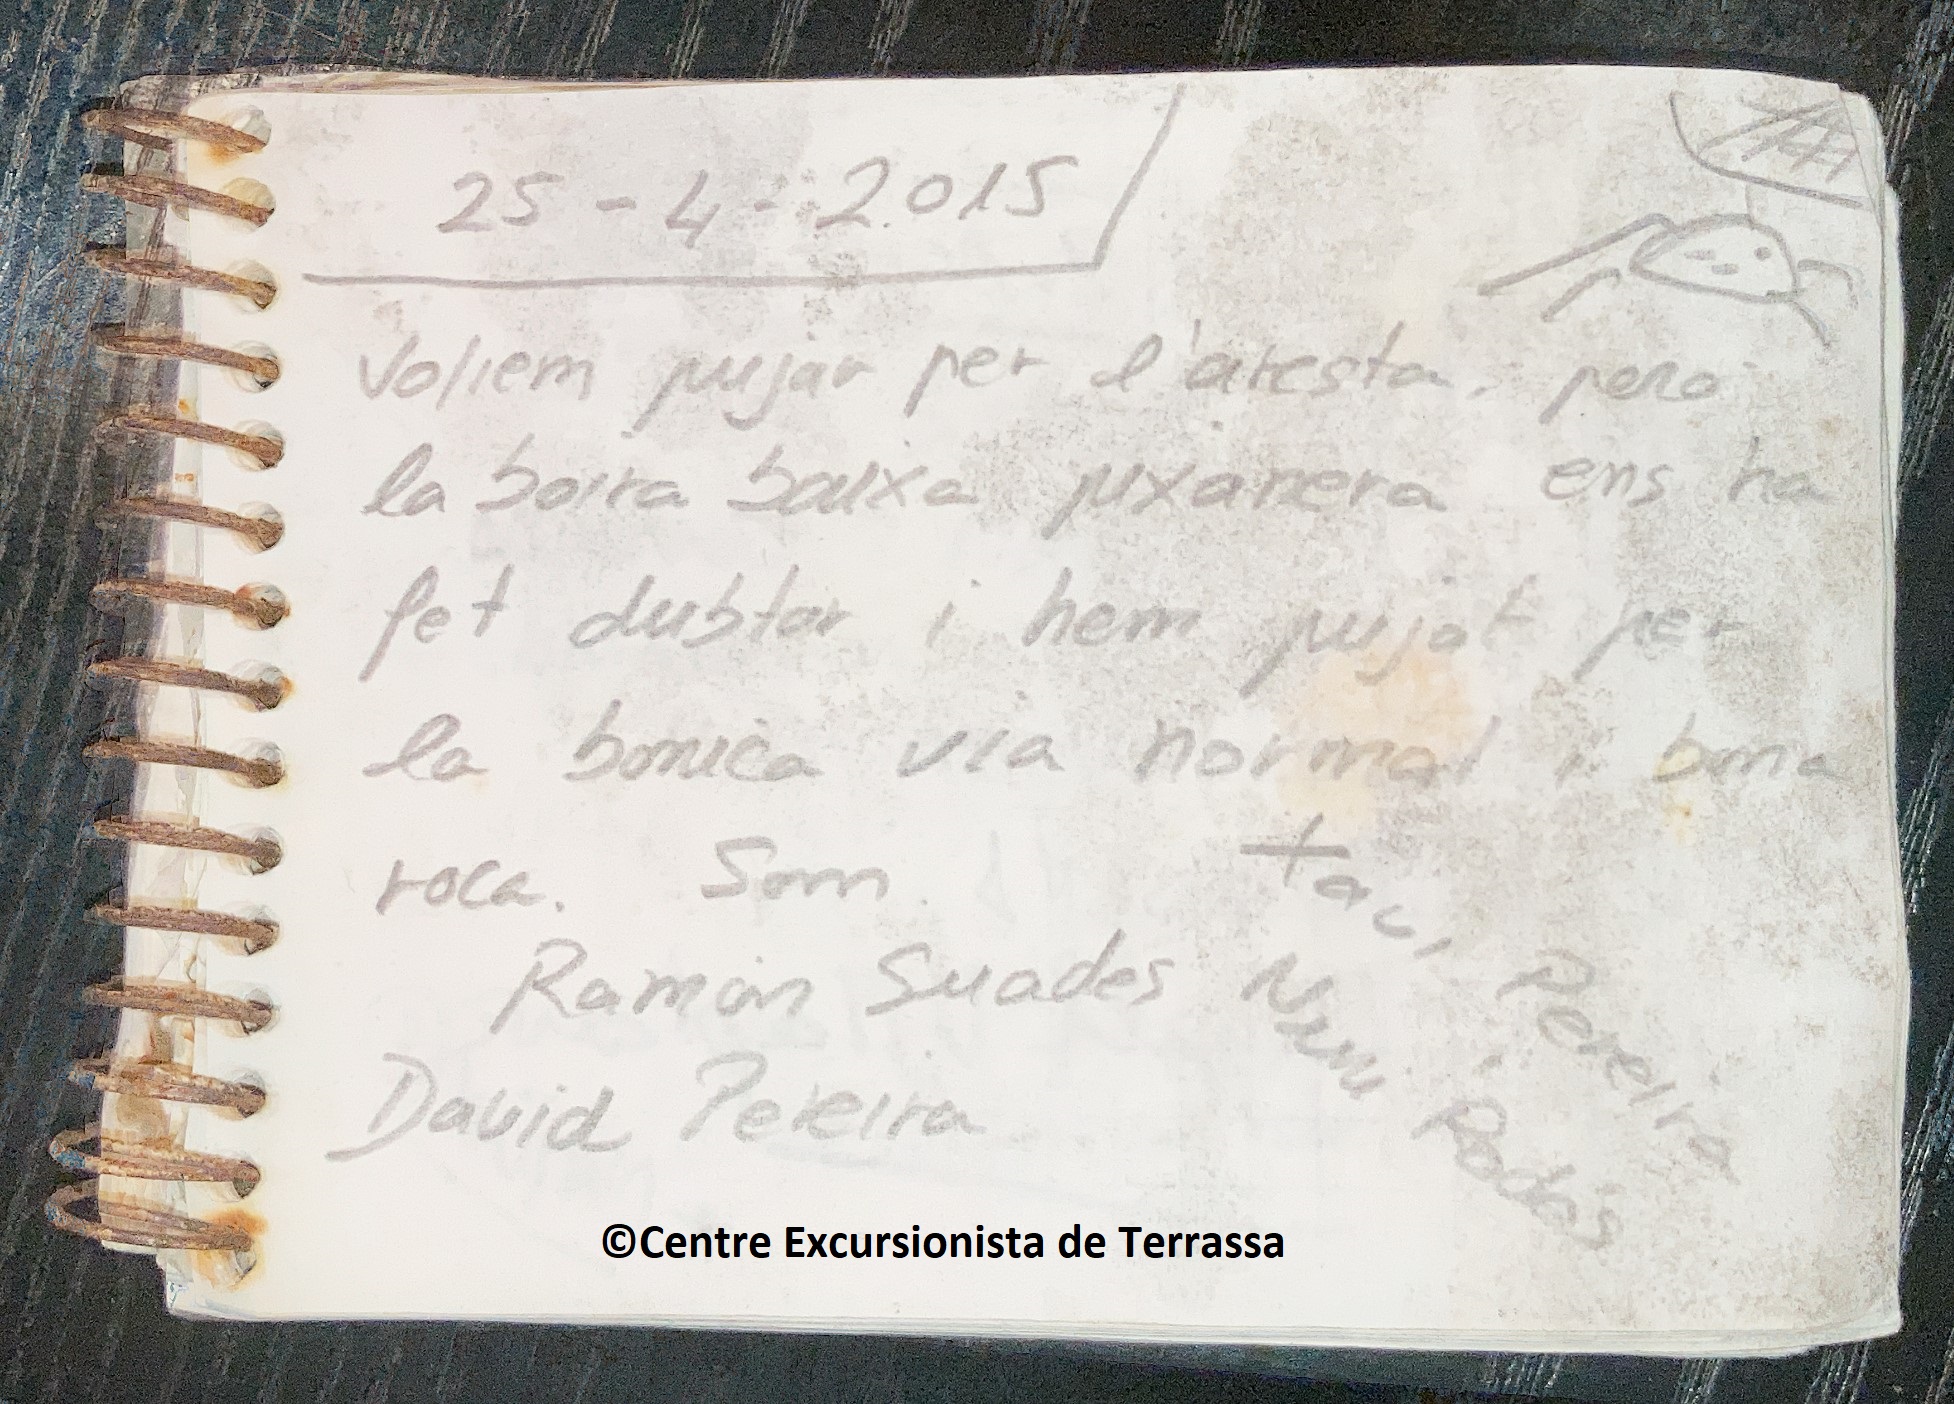 25-4-2015
Voliem pujar per l'aresta, pero
la boira baixa pixanera ens ha
fet dubtar i hem pujat per
la bonica via normal i bona
roca. Som.
Ramón Suades
David Pereira
Pereira
Rodés
©Centre Excursionista de Terrassa